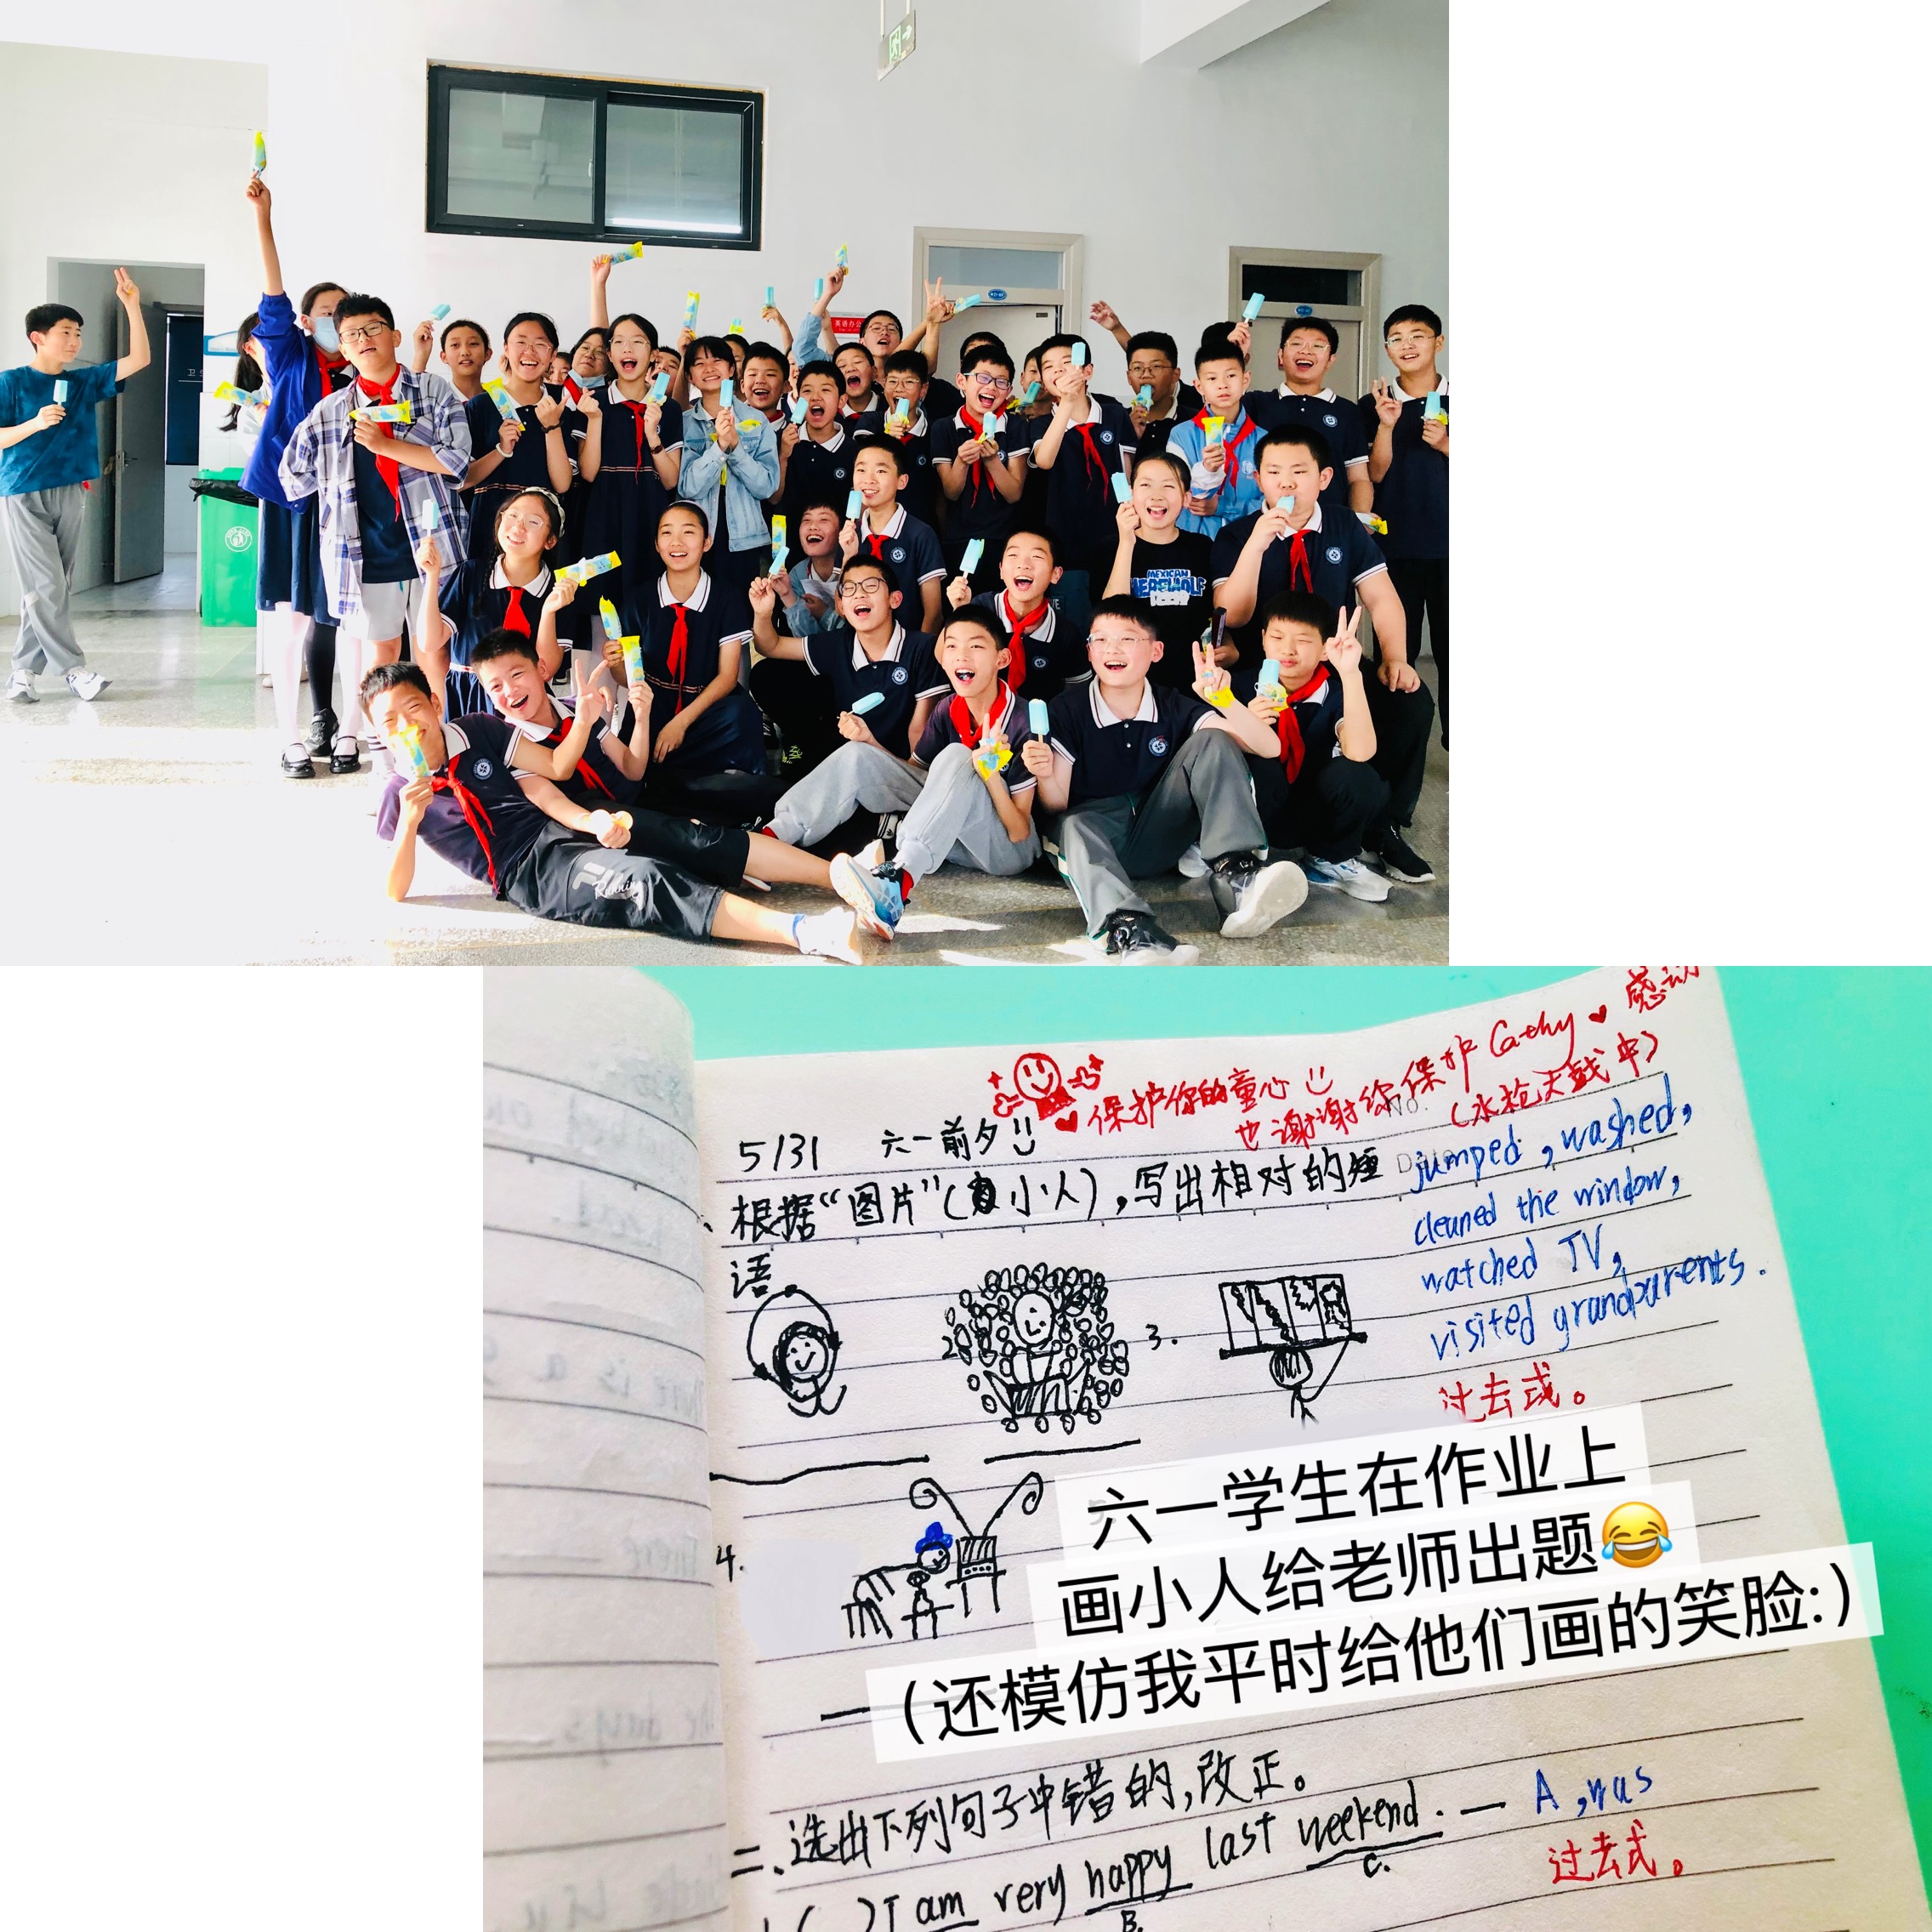 英语办公
MEXICAN
Running
感动
保护你的童心
也谢谢你保护 Cathy
(水枪大战中)
5/31 六一前夕
No.
根据“图片”(小人),写出相对的短
语
jumped, washed,
cleaned the window,
watched TV,
visited grandparents.
过去式。
3.
4.
六一学生在作业上
画小人给老师出题😂
(还模仿我平时给他们画的笑脸:)
二、选出下列句子中错的,改正。
( ) I am very happy last weekend. — A, was
B.
C.
过去式。